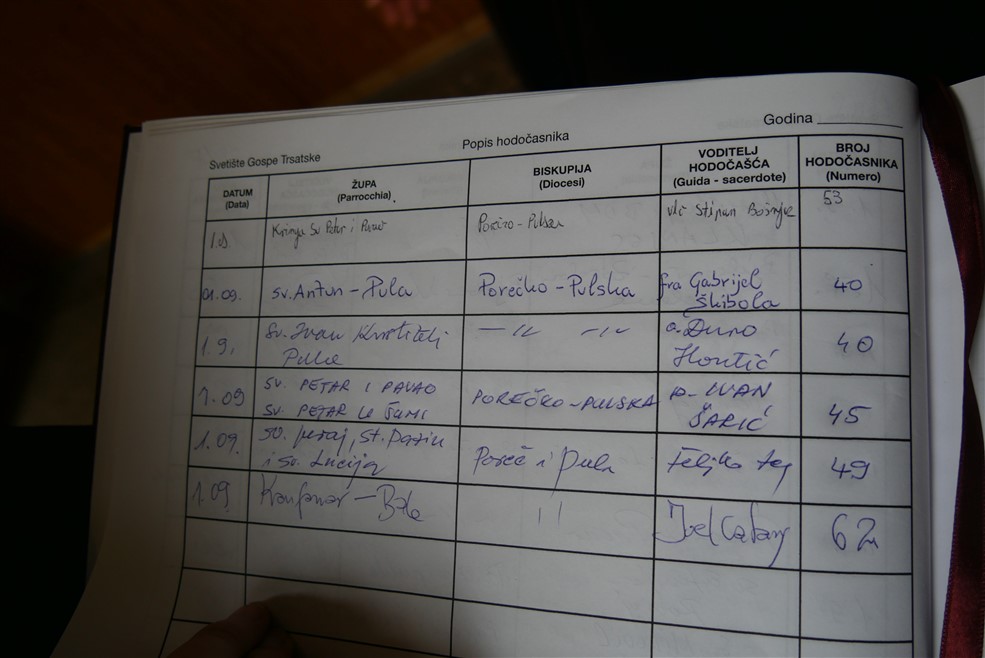 Svetište Gospe Trsatske
Popis hodočasnika
Godina
DATUM
(Data)
ŽUPA
(Parrocchia)
BISKUPIJA
(Diocesi)
VODITELJ
HODOČAŠĆA
(Guida - sacerdote)
BROJ
HODOČASNIKA
(Numero)
Sv Petar i
vlč Stipan Bošnjak
53
01.09.
sv. Antun - Pula
Porečko - Pulska
fra Gabrijel
Škibola
40
1.9.
Sv. Ivan Krstitelj
Pula
-"- -"-
o. Đuro
Hontić
40
1.09
SV. PETAR I PAVAO
SV. PETAR U ŠUMI
POREČKO-PULSKA
p. IVAN
ŠARIĆ
45
1.09.
Sv. Juraj, St. Pazin
i Sv. Lucija
Poreč i Pula
Željko
49
1.09
Kanfanar - Bale
"
Joel Catary
62